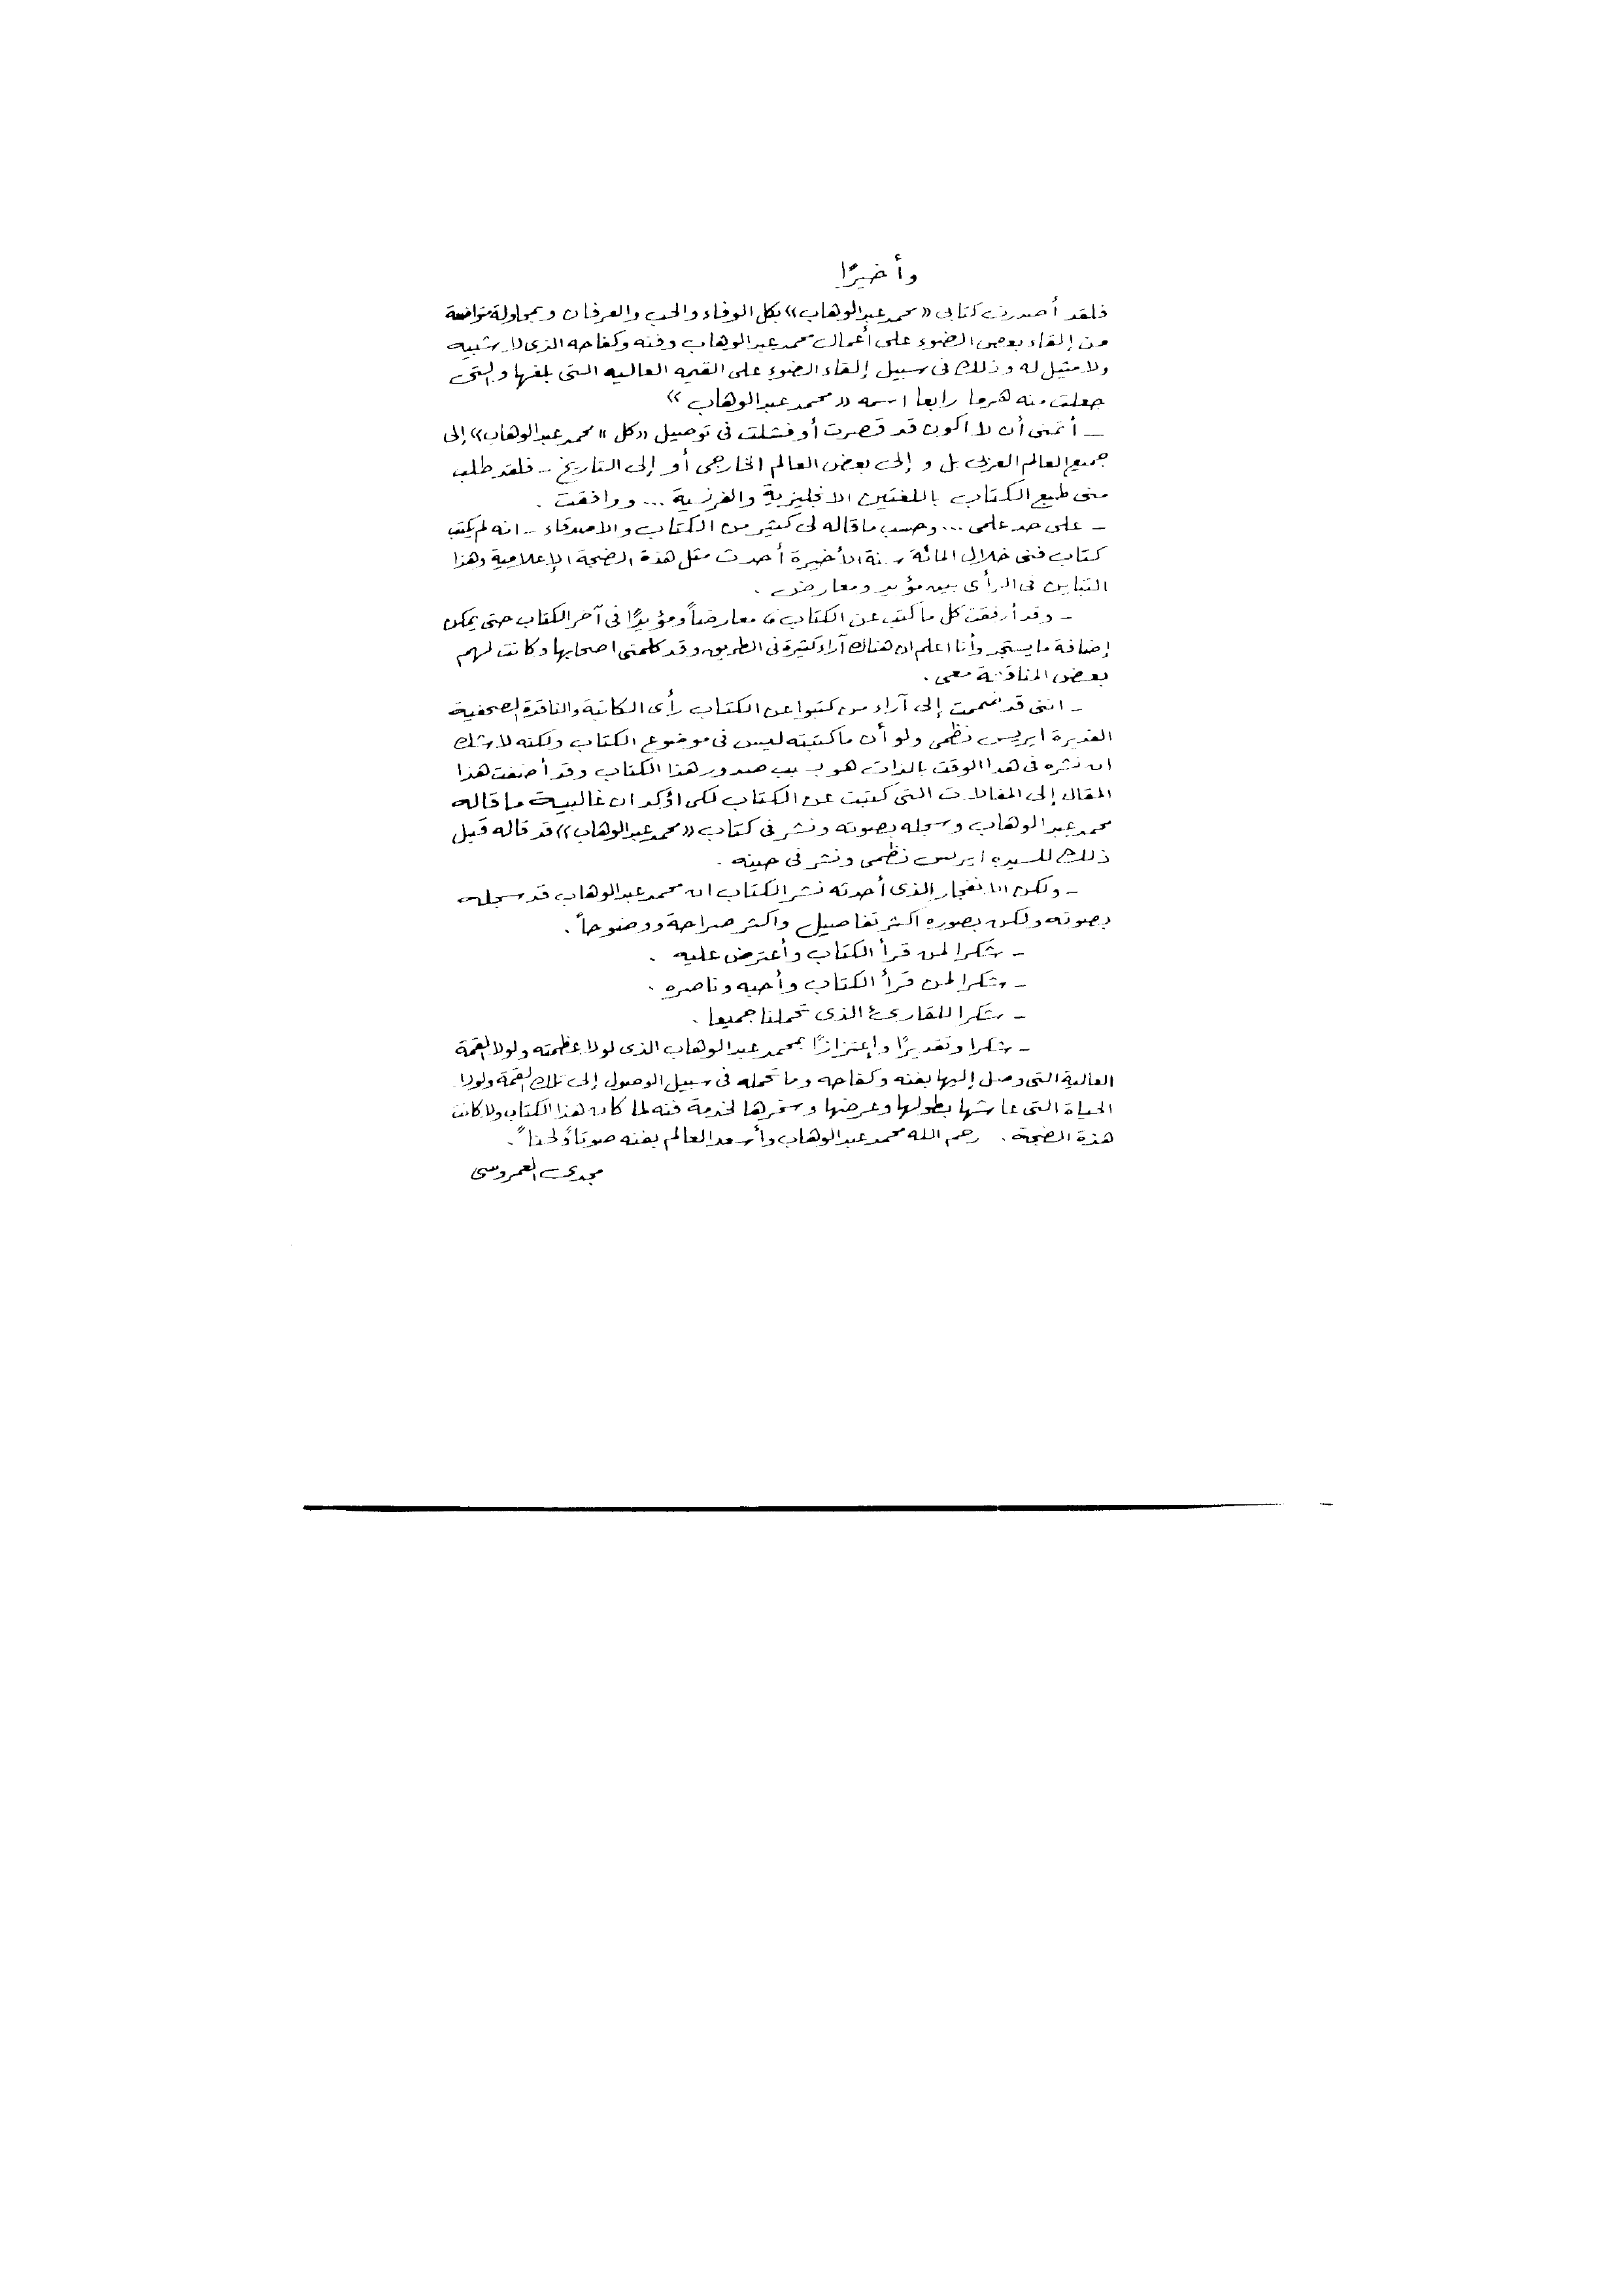 وأخيرًا
فلقد أصدرت كتابى «محمد عبدالوهاب» بكل الوفاء والحب والعرفان وبمحاولة متواضعة
من إلقاء بعض الضوء على أعمال محمد عبدالوهاب وفنه وكفاحه الذى لا شبيه
ولا مثيل له وذلك فى سبيل إلقاء الضوء على القيمه العاليه التى بلغها والتى
جعلت منه هرما رابعا اسمه «محمد عبدالوهاب»
– أتمنى أن لا اكون قد قصرت أو فشلت فى توصيل «كل» محمد عبدالوهاب» إلى
جميع العالم العربى بل و إلى بعض العالم الخارجى أو إلى التاريخ – فلقد طلب
منى طبع الكتاب باللغتين الانجليزية والفرنسية ... ووافقت .
– على حد علمى ... وحسب ما قاله لى كثير من الكتاب والاصدقاء – انه لم يكتب
كتاب فنى خلال المائة سنة الأخيرة أحدث مثل هذة الضجة الإعلامية وهذا
التباين فى الرأى بين مؤيد ومعارض .
– وقد أرفقت كل ما كتب عن الكتاب معارضاً ومؤيدًا فى آخر الكتاب حتى يمكن
إضافة ما يستجد وأنا اعلم ان هناك آراء كثيرة فى الطريق وقد كلمنى اصحابها وكانت لهم
بعض المناقشة معى .
– اننى قد ضممت إلى آراء من كتبوا عن الكتاب رأى الكاتبة والناقدة الصحفية
القديرة ايريس نظمى ولو أن ما كتبته ليس فى موضوع الكتاب ولكنه لا شك
ان نشره فى هذا الوقت بالذات هو بسبب صدور هذا الكتاب وقد أضفت هذا
المقال إلى المقالات التى كتبت عن الكتاب لكى اؤكد ان غالبية ما قاله
محمد عبدالوهاب وسجله بصوته ونشر فى كتاب «محمد عبدالوهاب» قد قاله قبل
ذلك للسيده ايريس نظمى ونشر فى حينه .
– ولكن الانفجار الذى أحدثه نشر الكتاب ان محمد عبدالوهاب قد سجله
بصوته ولكن بصوره اكثر تفاصيل واكثر صراحة ووضوحاً .
– شكرا لمن قرأ الكتاب وأعترض عليه .
– شكرا لمن قرأ الكتاب وأحبه وناصره .
– شكرا للقارئ الذى تحملنا جميعا .
– شكرا وتقديرًا وإعتزازًا بمحمد عبدالوهاب الذى لولا عظمته ولولا القمة
العالية التى وصل إليها بفنه وكفاحه وما تحمله فى سبيل الوصول إلى تلك القمة ولولا
الحياة التى عاشها بطولها وعرضها وسخرها لخدمة فنه لما كان هذا الكتاب ولا كانت
هذة الضجة . رحم الله محمد عبدالوهاب وأسعد العالم بفنه صوتاً ولحناً .
مجدى العمروسى